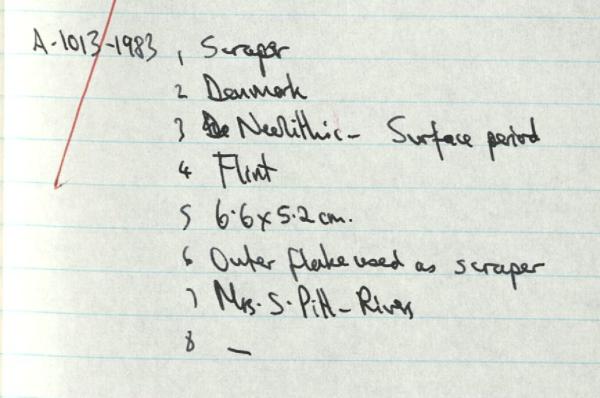 A-1013-1983 1 Scraper
2 Denmark
3 Neolithic - Surface period
4 Flint
5 6.6 x 5.2 cm.
6 Outer flake used as scraper
7 Mrs. S. Pitt-Rivers
8 —